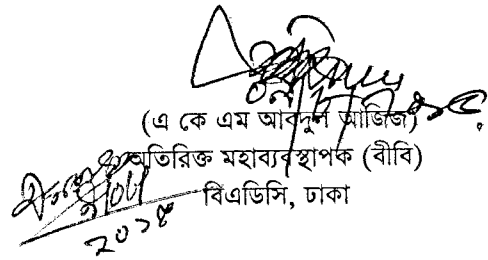 (এ কে এম আবদুল আজিজ)
অতিরিক্ত মহাব্যবস্থাপক (বীবি)
বিএডিসি, ঢাকা
২০১৫